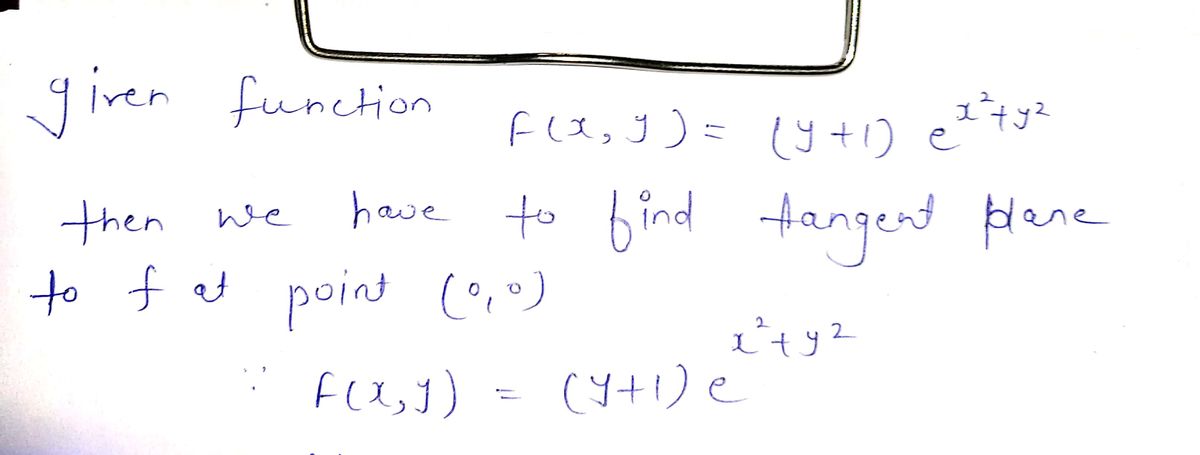 given function f(x, y) = (y+1) e^{x²+y²}
then we have to find tangent plane
to f at point (0,0)
∵ f(x,y) = (y+1) e^{x²+y²}